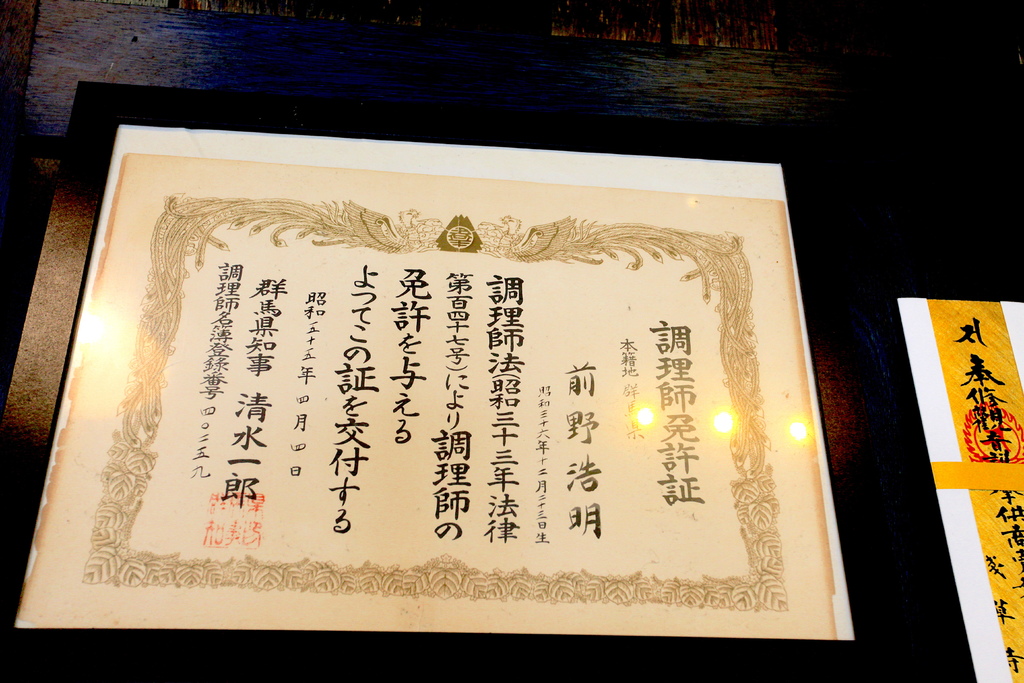 調理師免許証
本籍地 群馬県
前野浩明
昭和三十六年十二月二十三日生
調理師法(昭和三十三年法律
第百四十七号)により調理師の
免許を与える
よつてこの証を交付する
昭和五十五年四月四日
群馬県知事 清水一郎
調理師名簿登録番号 四〇二五九
奉修観音
供商売
浅草寺